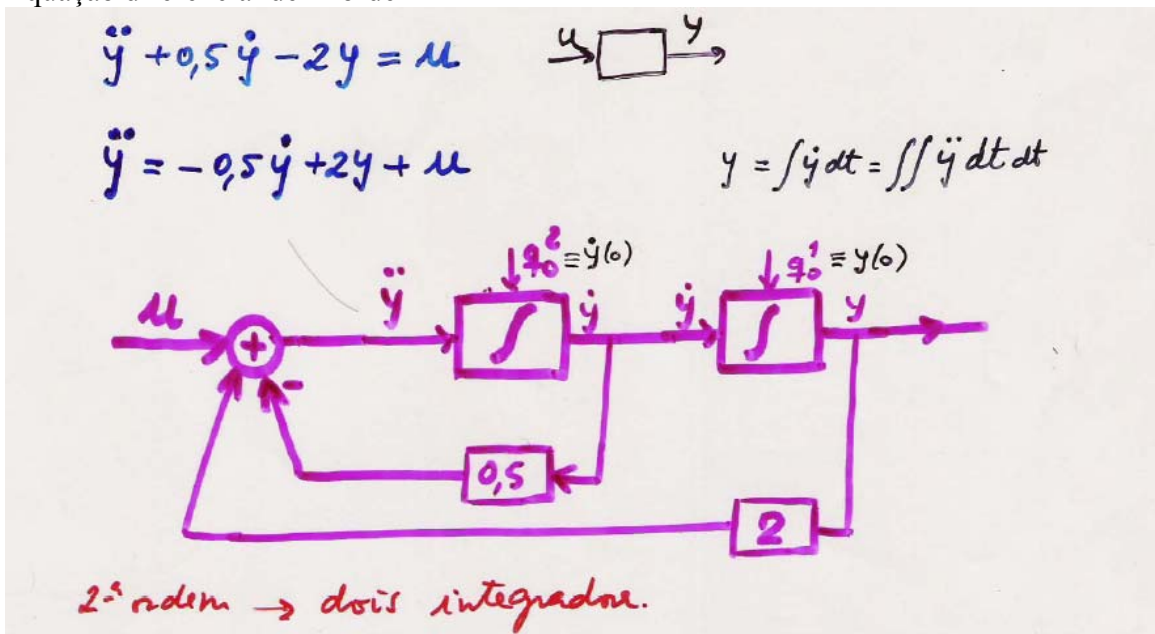 ÿ + 0,5 ẏ - 2y = u
u y
ÿ = - 0,5 ẏ + 2y + u
y = ∫ẏ dt = ∫∫ ÿ dt dt
q₀² ≡ ẏ(0) q₀¹ ≡ y(0)
u + ÿ ∫ ẏ ẏ ∫ y
-
0,5
2
2ª ordem → dois integradore.